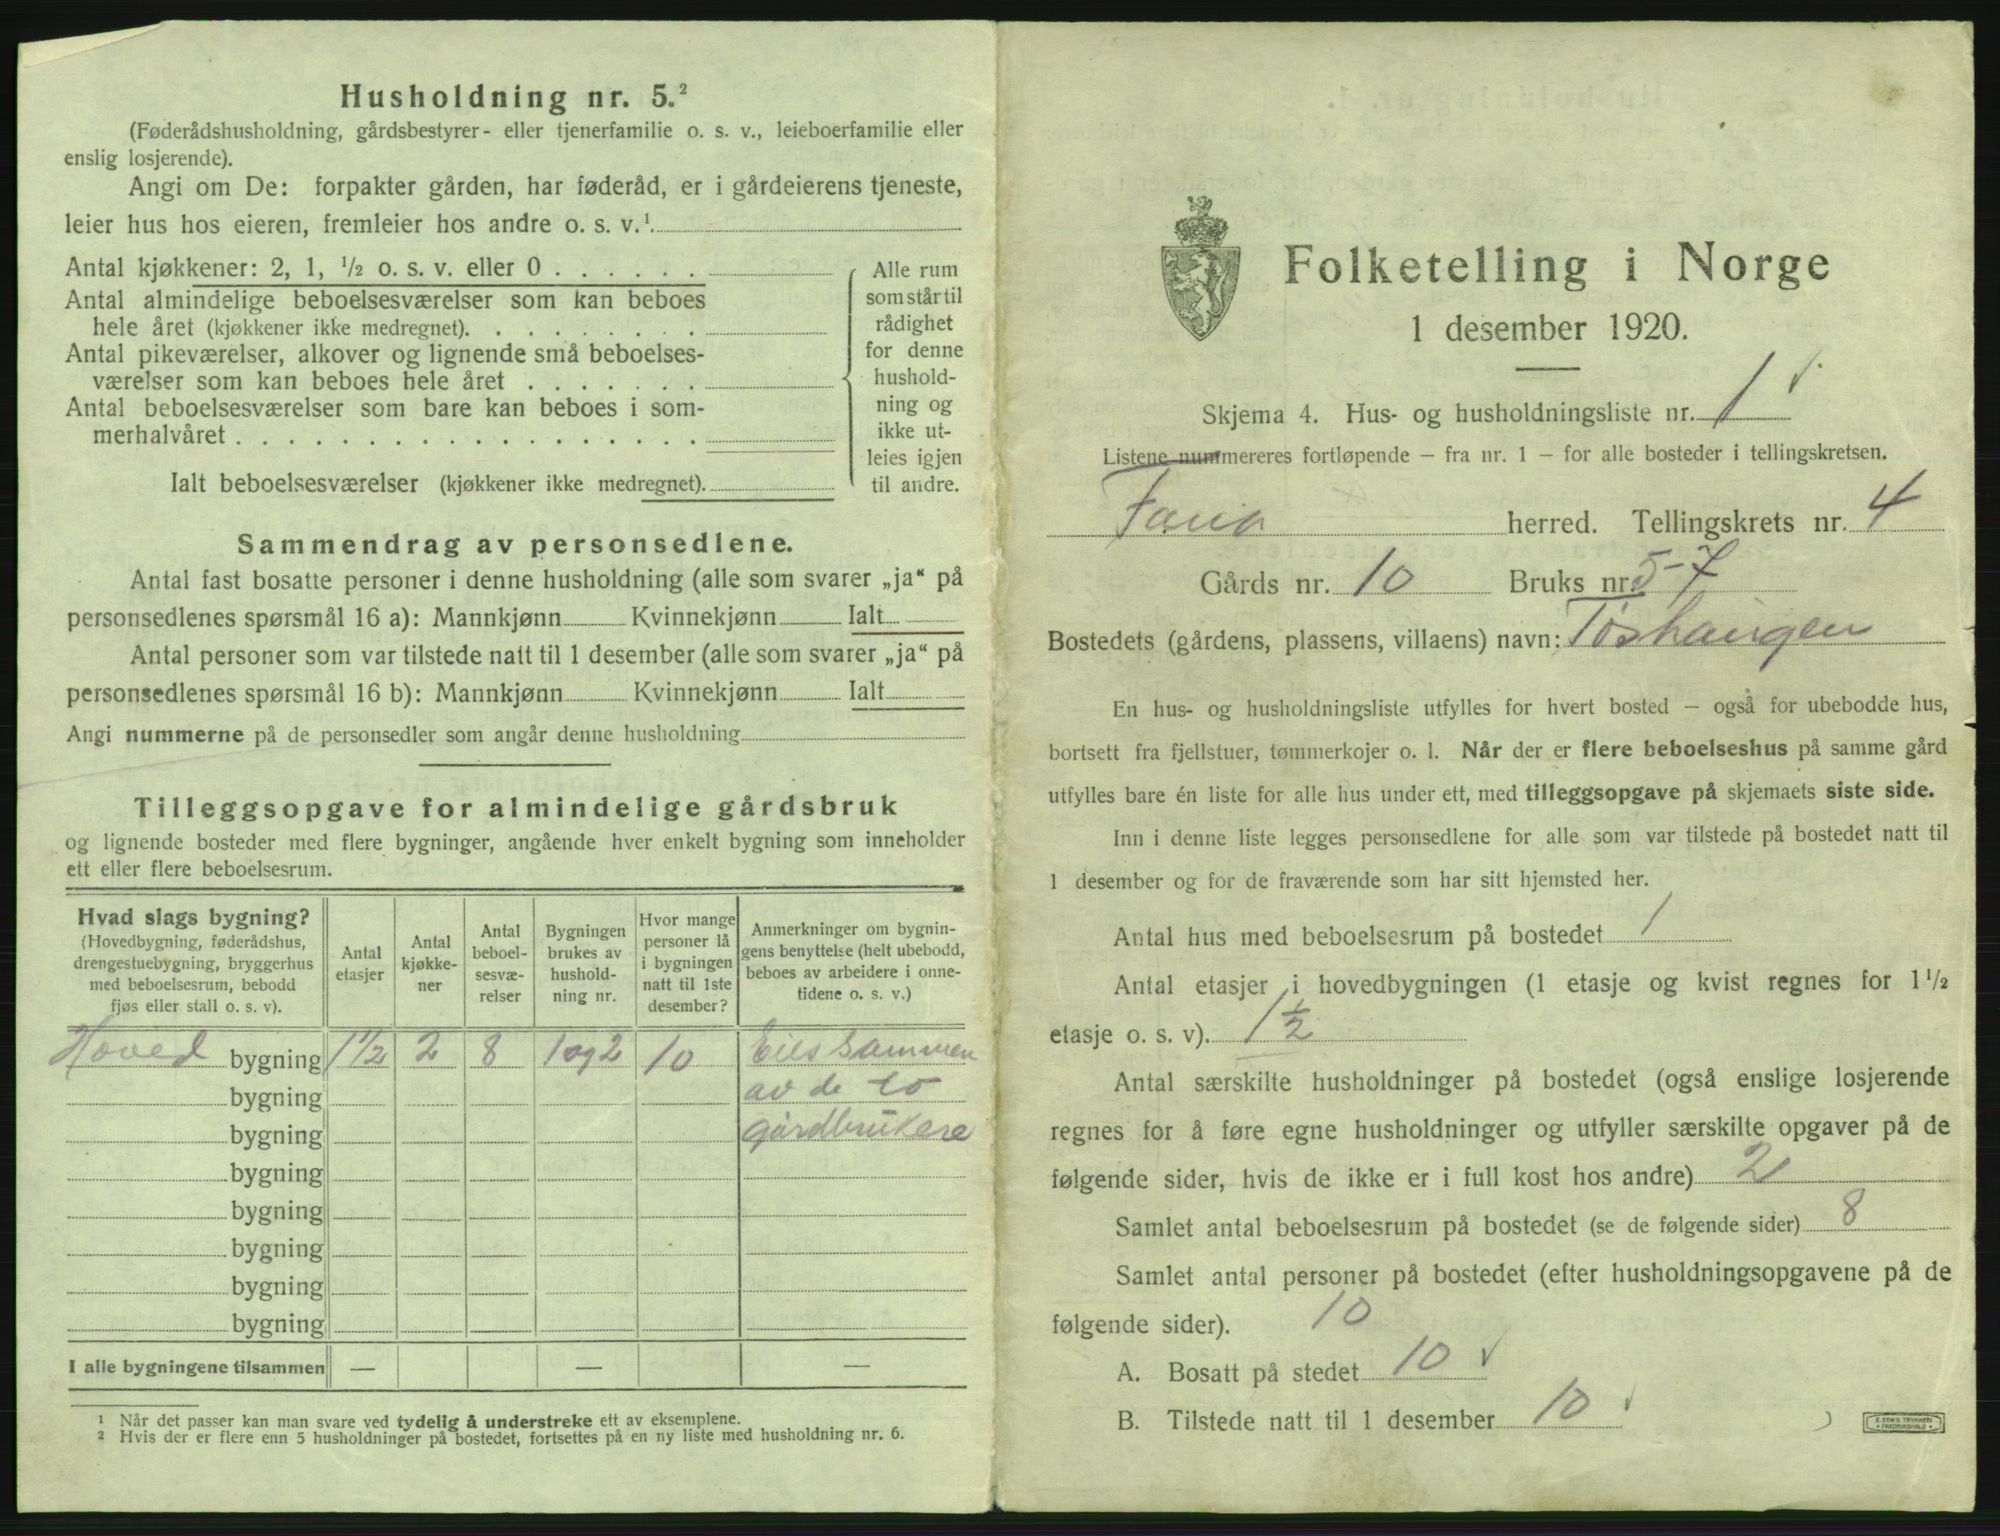 Husholdning nr. 5.²
(Føderådshusholdning, gårdsbestyrer- eller tjenerfamilie o. s. v., leieboerfamilie eller
enslig losjerende).
Angi om De: forpakter gården, har føderåd, er i gårdeierens tjeneste,
leier hus hos eieren, fremleier hos andre o. s. v.¹
Antal kjøkkener: 2, 1, ½ o. s. v. eller 0 . . . . . .
Antal almindelige beboelsesværelser som kan beboes
hele året (kjøkkener ikke medregnet). . . . . . . . .
Antal pikeværelser, alkover og lignende små beboelses-
værelser som kan beboes hele året . . . . . . .
Antal beboelsesværelser som bare kan beboes i som-
merhalvåret . . . . . . . . . . . . . . . . . .
Alle rum
som står til
rådighet
for denne
hushold-
ning og
ikke ut-
leies igjen
til andre.
Ialt beboelsesværelser (kjøkkener ikke medregnet).
Sammendrag av personsedlene.
Antal fast bosatte personer i denne husholdning (alle som svarer „ja“ på
personsedlenes spørsmål 16 a): Mannkjønn Kvinnekjønn Ialt
Antal personer som var tilstede natt til 1 desember (alle som svarer „ja“ på
personsedlenes spørsmål 16 b): Mannkjønn Kvinnekjønn Ialt
Angi nummerne på de personsedler som angår denne husholdning
Tilleggsopgave for almindelige gårdsbruk
og lignende bosteder med flere bygninger, angående hver enkelt bygning som inneholder
ett eller flere beboelsesrum.
Hvad slags bygning?
(Hovedbygning, føderådshus,
drengestuebygning, bryggerhus
med beboelsesrum, bebodd
fjøs eller stall o. s. v).
Antal
etasjer
Antal
kjøkke-
ner
Antal
beboel-
sesvæ-
relser
Bygningen
brukes av
hushold-
ning nr.
Hvor mange
personer lå
i bygningen
natt til 1ste
desember?
Anmerkninger om bygnin-
gens benyttelse (helt ubebodd,
beboes av arbeidere i onne-
tidene o. s. v.)
Hoved bygning 1½ 2 8 1 og 2 10 Eies sammen
bygning av de to
bygning gårdbrukere
bygning
bygning
bygning
bygning
bygning
I alle bygningene tilsammen — — —
¹ Når det passer kan man svare ved tydelig å understreke ett av eksemplene.
² Hvis der er flere enn 5 husholdninger på bostedet, fortsettes på en ny liste med husholdning nr. 6.
Folketelling i Norge
1 desember 1920.
Skjema 4. Hus- og husholdningsliste nr. 1
Listene nummereres fortløpende – fra nr. 1 – for alle bosteder i tellingskretsen.
herred. Tellingskrets nr. 4
Gårds nr. 10 Bruks nr. 5-7
Bostedets (gårdens, plassens, villaens) navn: Toshaugen
En hus- og husholdningsliste utfylles for hvert bosted – også for ubebodde hus,
bortsett fra fjellstuer, tømmerkojer o. l. Når der er flere beboelseshus på samme gård
utfylles bare én liste for alle hus under ett, med tilleggsopgave på skjemaets siste side.
Inn i denne liste legges personsedlene for alle som var tilstede på bostedet natt til
1 desember og for de fraværende som har sitt hjemsted her.
Antal hus med beboelsesrum på bostedet 1
Antal etasjer i hovedbygningen (1 etasje og kvist regnes for 1½
etasje o. s. v). 1½
Antal særskilte husholdninger på bostedet (også enslige losjerende
regnes for å føre egne husholdninger og utfyller særskilte opgaver på de
følgende sider, hvis de ikke er i full kost hos andre) 2
Samlet antal beboelsesrum på bostedet (se de følgende sider) 8
Samlet antal personer på bostedet (efter husholdningsopgavene på de
følgende sider). 10
A. Bosatt på stedet 10
B. Tilstede natt til 1 desember 10